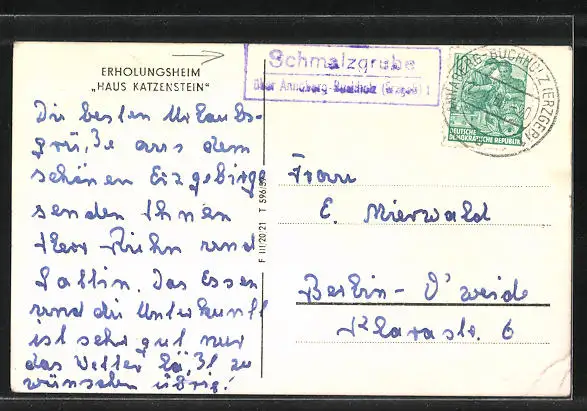 ERHOLUNGSHEIM
„HAUS KATZENSTEIN“
Die besten Urlaubs-
grüße aus dem
schönen Erzgebirge
senden Ihnen
Herr Kühn und
Gattin. Das Essen
und die Unterkunft
ist sehr gut nur
das Wetter läßt zu
wünschen übrig!
F III/20/21 T 596/57
Schmalzgrube
über Annaberg-Buchholz (Erzgeb)
DEUTSCHE
DEMOKRATISCHE REPUBLIK
ANNABERG-BUCHHOLZ (ERZGEB)
Frau
E. Mierwald
Berlin-O'weide
Klarastr. 6